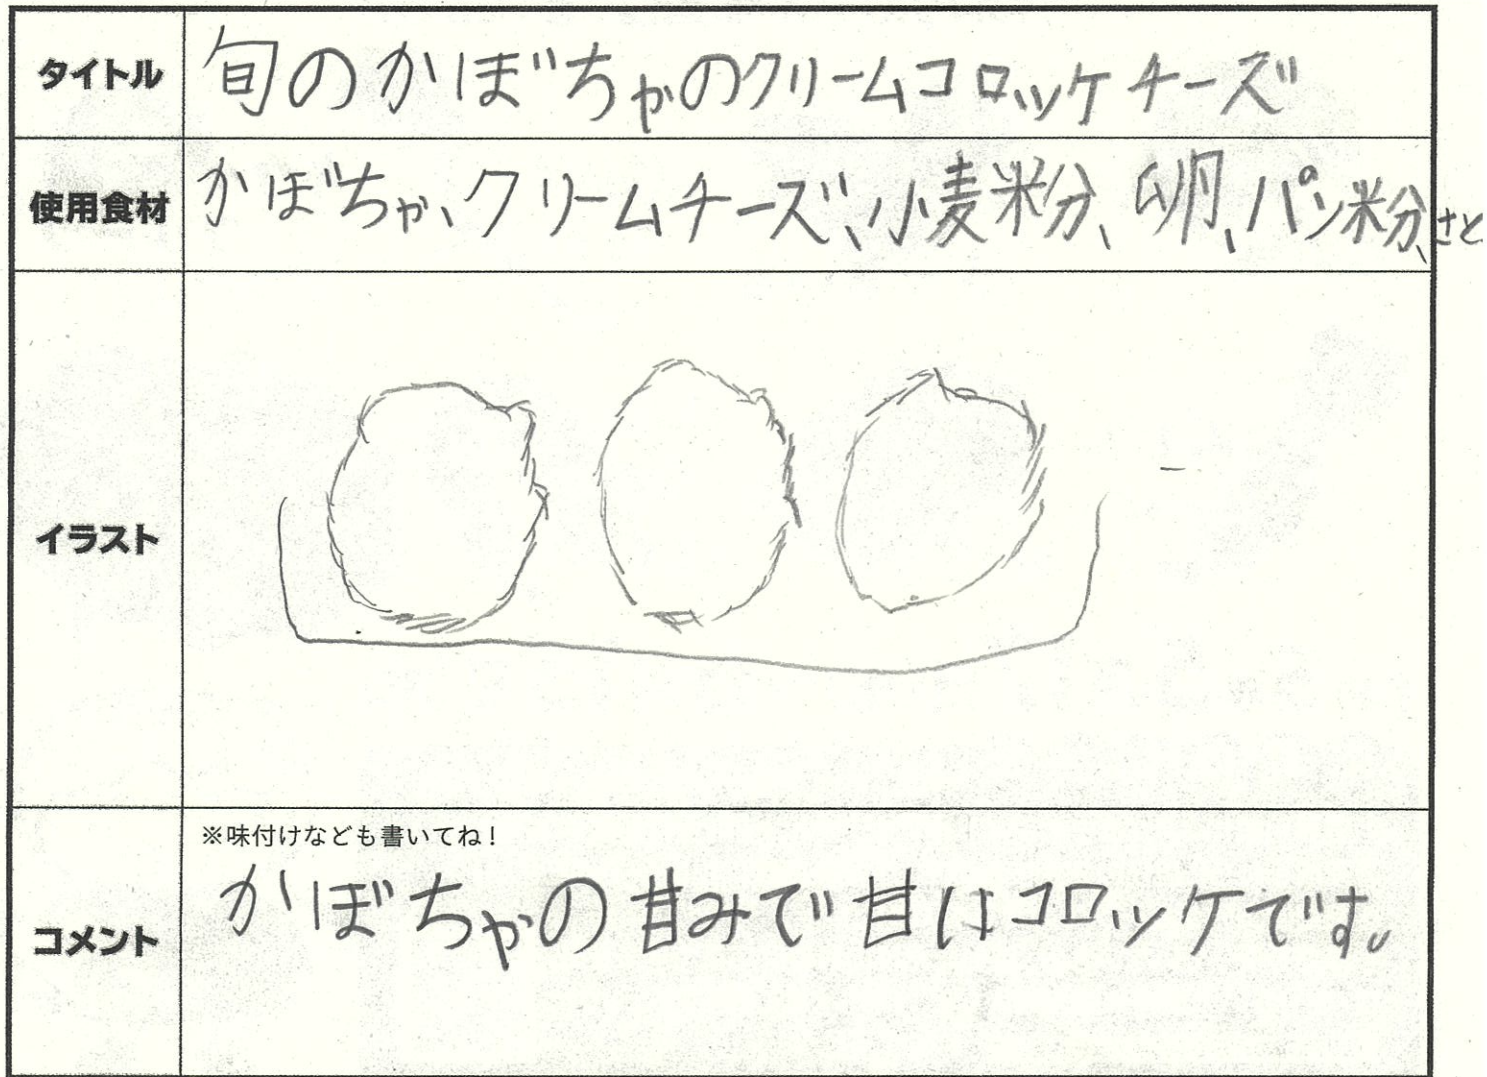 タイトル
旬のかぼちゃのクリームコロッケチーズ
使用食材
かぼちゃ、クリームチーズ、小麦粉、卵、パン粉、さと
イラスト
コメント
※味付けなども書いてね！
かぼちゃの甘みで甘はコロッケです。